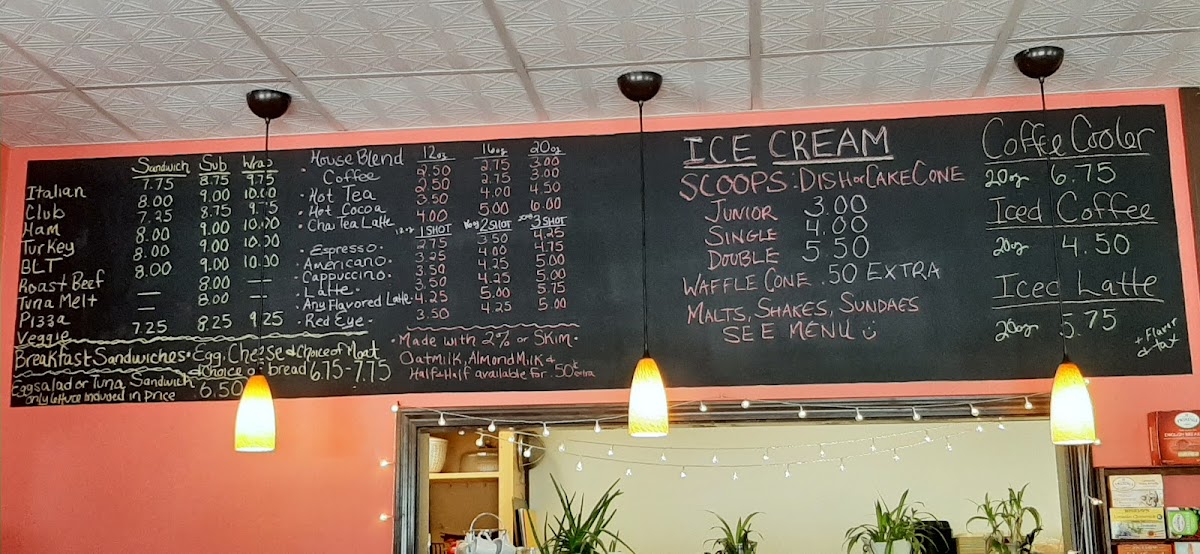 Sandwich Sub Wrap
Italian 7.75 8.75 9.75
Club 8.00 9.00 10.00
Ham 7.25 8.75 9.75
Turkey 8.00 9.00 10.00
BLT 8.00 9.00 10.00
Roast Beef 8.00 9.00 10.00
Tuna Melt — 8.00 —
Pizza — 8.00 —
Veggie 7.25 8.25 9.25
Breakfast Sandwiches • Egg, Cheese & Choice of Meat
& Choice of bread 6.75-7.75
Eggsalad or Tuna Sandwich • 6.50
only lettuce included in price
12oz 16oz 20oz
• House Blend Coffee 2.50 2.75 3.00
• Hot Tea 2.50 3.75 3.00
• Hot Cocoa 3.50 4.00 4.50
• Chai Tea Latte 4.00 5.00 6.00
12oz 1 SHOT 16oz 2 SHOT 20oz 3 SHOT
• Espresso • 2.75 3.50 4.25
• Americano 3.25 4.00 4.75
• Cappuccino • 3.50 4.25 5.00
• Latte • 3.50 4.25 5.00
• Any Flavored Latte • 4.25 5.00 5.75
• Red Eye • 3.50 4.25 5.00
• Made with 2% or Skim •
Oatmilk, Almond Milk &
Half & Half available for .50¢ extra
ICE CREAM
SCOOPS: DISH or CAKE CONE
JUNIOR 3.00
SINGLE 4.00
DOUBLE 5.50
WAFFLE CONE .50 EXTRA
MALTS, SHAKES, SUNDAES
SEE MENU
Coffee Cooler
20oz 6.75
Iced Coffee
20oz 4.50
Iced Latte
20oz 5.75
+ Flavor
& tax